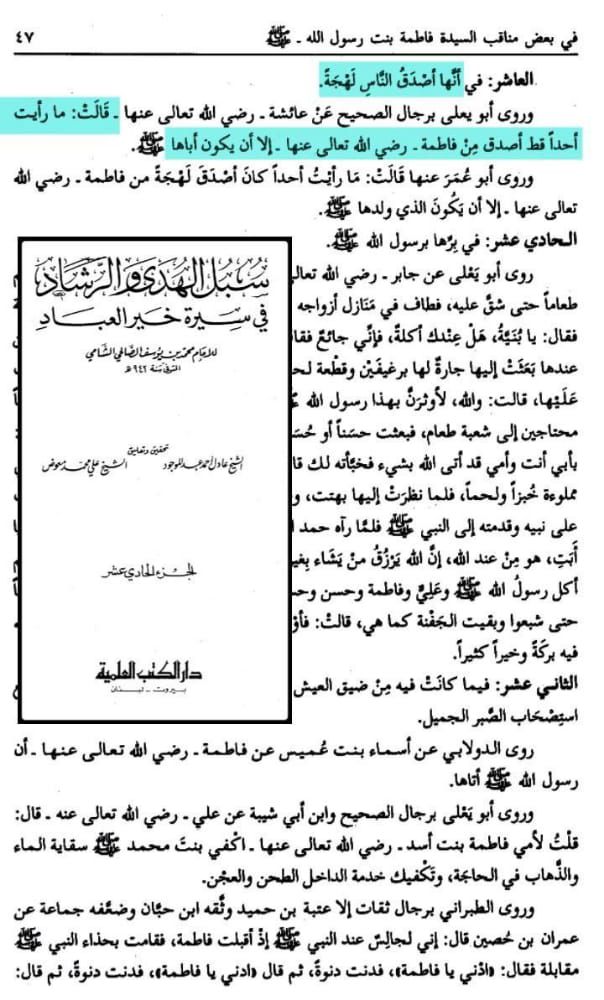 في بعض مناقب السيدة فاطمة بنت رسول الله ـ ﷺ
٤٧
العاشر: في أنَّها أصْدَقُ النَّاسِ لَهْجَةً.
وروى أبو يعلى برجال الصحيح عَنْ عائشة ـ رضي الله تعالى عنها ـ قَالَتْ: ما رأيت
أحداً قط أصدق مِنْ فاطمة ـ رضي الله تعالى عنها ـ إلا أن يكون أباها ﷺ.
وروى أبو عُمَرَ عنها قَالَتْ: مَا رأيْتُ أحداً كانَ أصْدَقَ لَهْجَةً من فاطمة ـ رضي الله
تعالى عنها ـ إلا أن يَكُونَ الذي ولدها ﷺ.
الحادي عشر: في بِرِّها برسول الله ﷺ.
روى أبو يَعْلى عن جابر ـ رضي الله تعالى
طعاماً حتى شقَّ عليه، فطاف في مَنَازل أزواجه
فقال: يا بُنَيَّةُ، هَلْ عِنْدك أكلةً، فإنِّي جائعٌ فقا
عندها بَعَثَتْ إليها جارةٌ لها برغيفَيْن وقطْعة لحـ
عَلَيْها، قالت: والله، لأوثرَنَّ بهذا رسول الله
محتاجين إلى شعبة طعام، فبعثت حسَناً أو حُسَـ
بأبي أنت وأمي قد أتى الله بشيء فخبَّأته لك قا
مملوءة خُبزاً ولحماً، فلما نظرَتْ إليها بهتت، و
على نبيه وقدمته إلى النبي ﷺ فلمَّا رآه حمد ا
أَبَتِ، هو مِنْ عند الله، إنَّ الله يَرْزُقُ منْ يَشَاء بِغيـ
أكل رسولُ الله ﷺ وعَلِيٌّ وفاطمة وحسن وحـ
حتى شبعوا وبقيت الجَفْنة كما هي، قالتْ: فأوْ
فيه بركةً وخيراً كثيراً.
الثاني عشر: فيما كانَتْ فيه مِنْ ضيق العيش
استِصْحَاب الصَّبر الجميل.
روى الدولابي عن أسماء بنت عُميس عن فاطمة ـ رضي الله تعالى عنها ـ أن
رسول الله ﷺ أتاها.
وروى أبو يَعْلى برجال الصحيح وابن أبي شيبة عن علي ـ رضي الله تعالى عنه ـ قال:
قلْتُ لأمي فاطمة بنت أسد ـ رضي الله تعالى عنها ـ اكْفي بنتَ محمد ﷺ سقاية الماء
والذَّهاب في الحاجَة، وتَكْفيك خدمة الداخل الطحن والعجْن.
وروى الطبراني برجال ثقات إلا عتبة بن حميد وثَّقه ابن حبَّان وضعَّفه جماعة عن
عمران بن حُصين قال: إني لجالسٌ عند النبي ﷺ إذْ أقبلت فاطمة، فقامت بحذاء النبي ﷺ
مقابلة فقال: «ادْني يا فاطمة»، فدنت دنوةً، ثم قال «ادني يا فاطمة»، فدنت دنوة، ثم قال:
سُبُلُ الهُدَى وَالرَّشَاد
في سِيرة خَير العِباد
للإمام محمد بن يوسف الصالحي الشامي
المتوفى سنة ٩٤٢ هـ
تحقيق وتعليق
الشيخ عادل أحمد عبد الموجود
الشيخ علي محمد معوض
الجزء الحادي عشر
دار الكتب العلمية
بيروت ـ لبنان